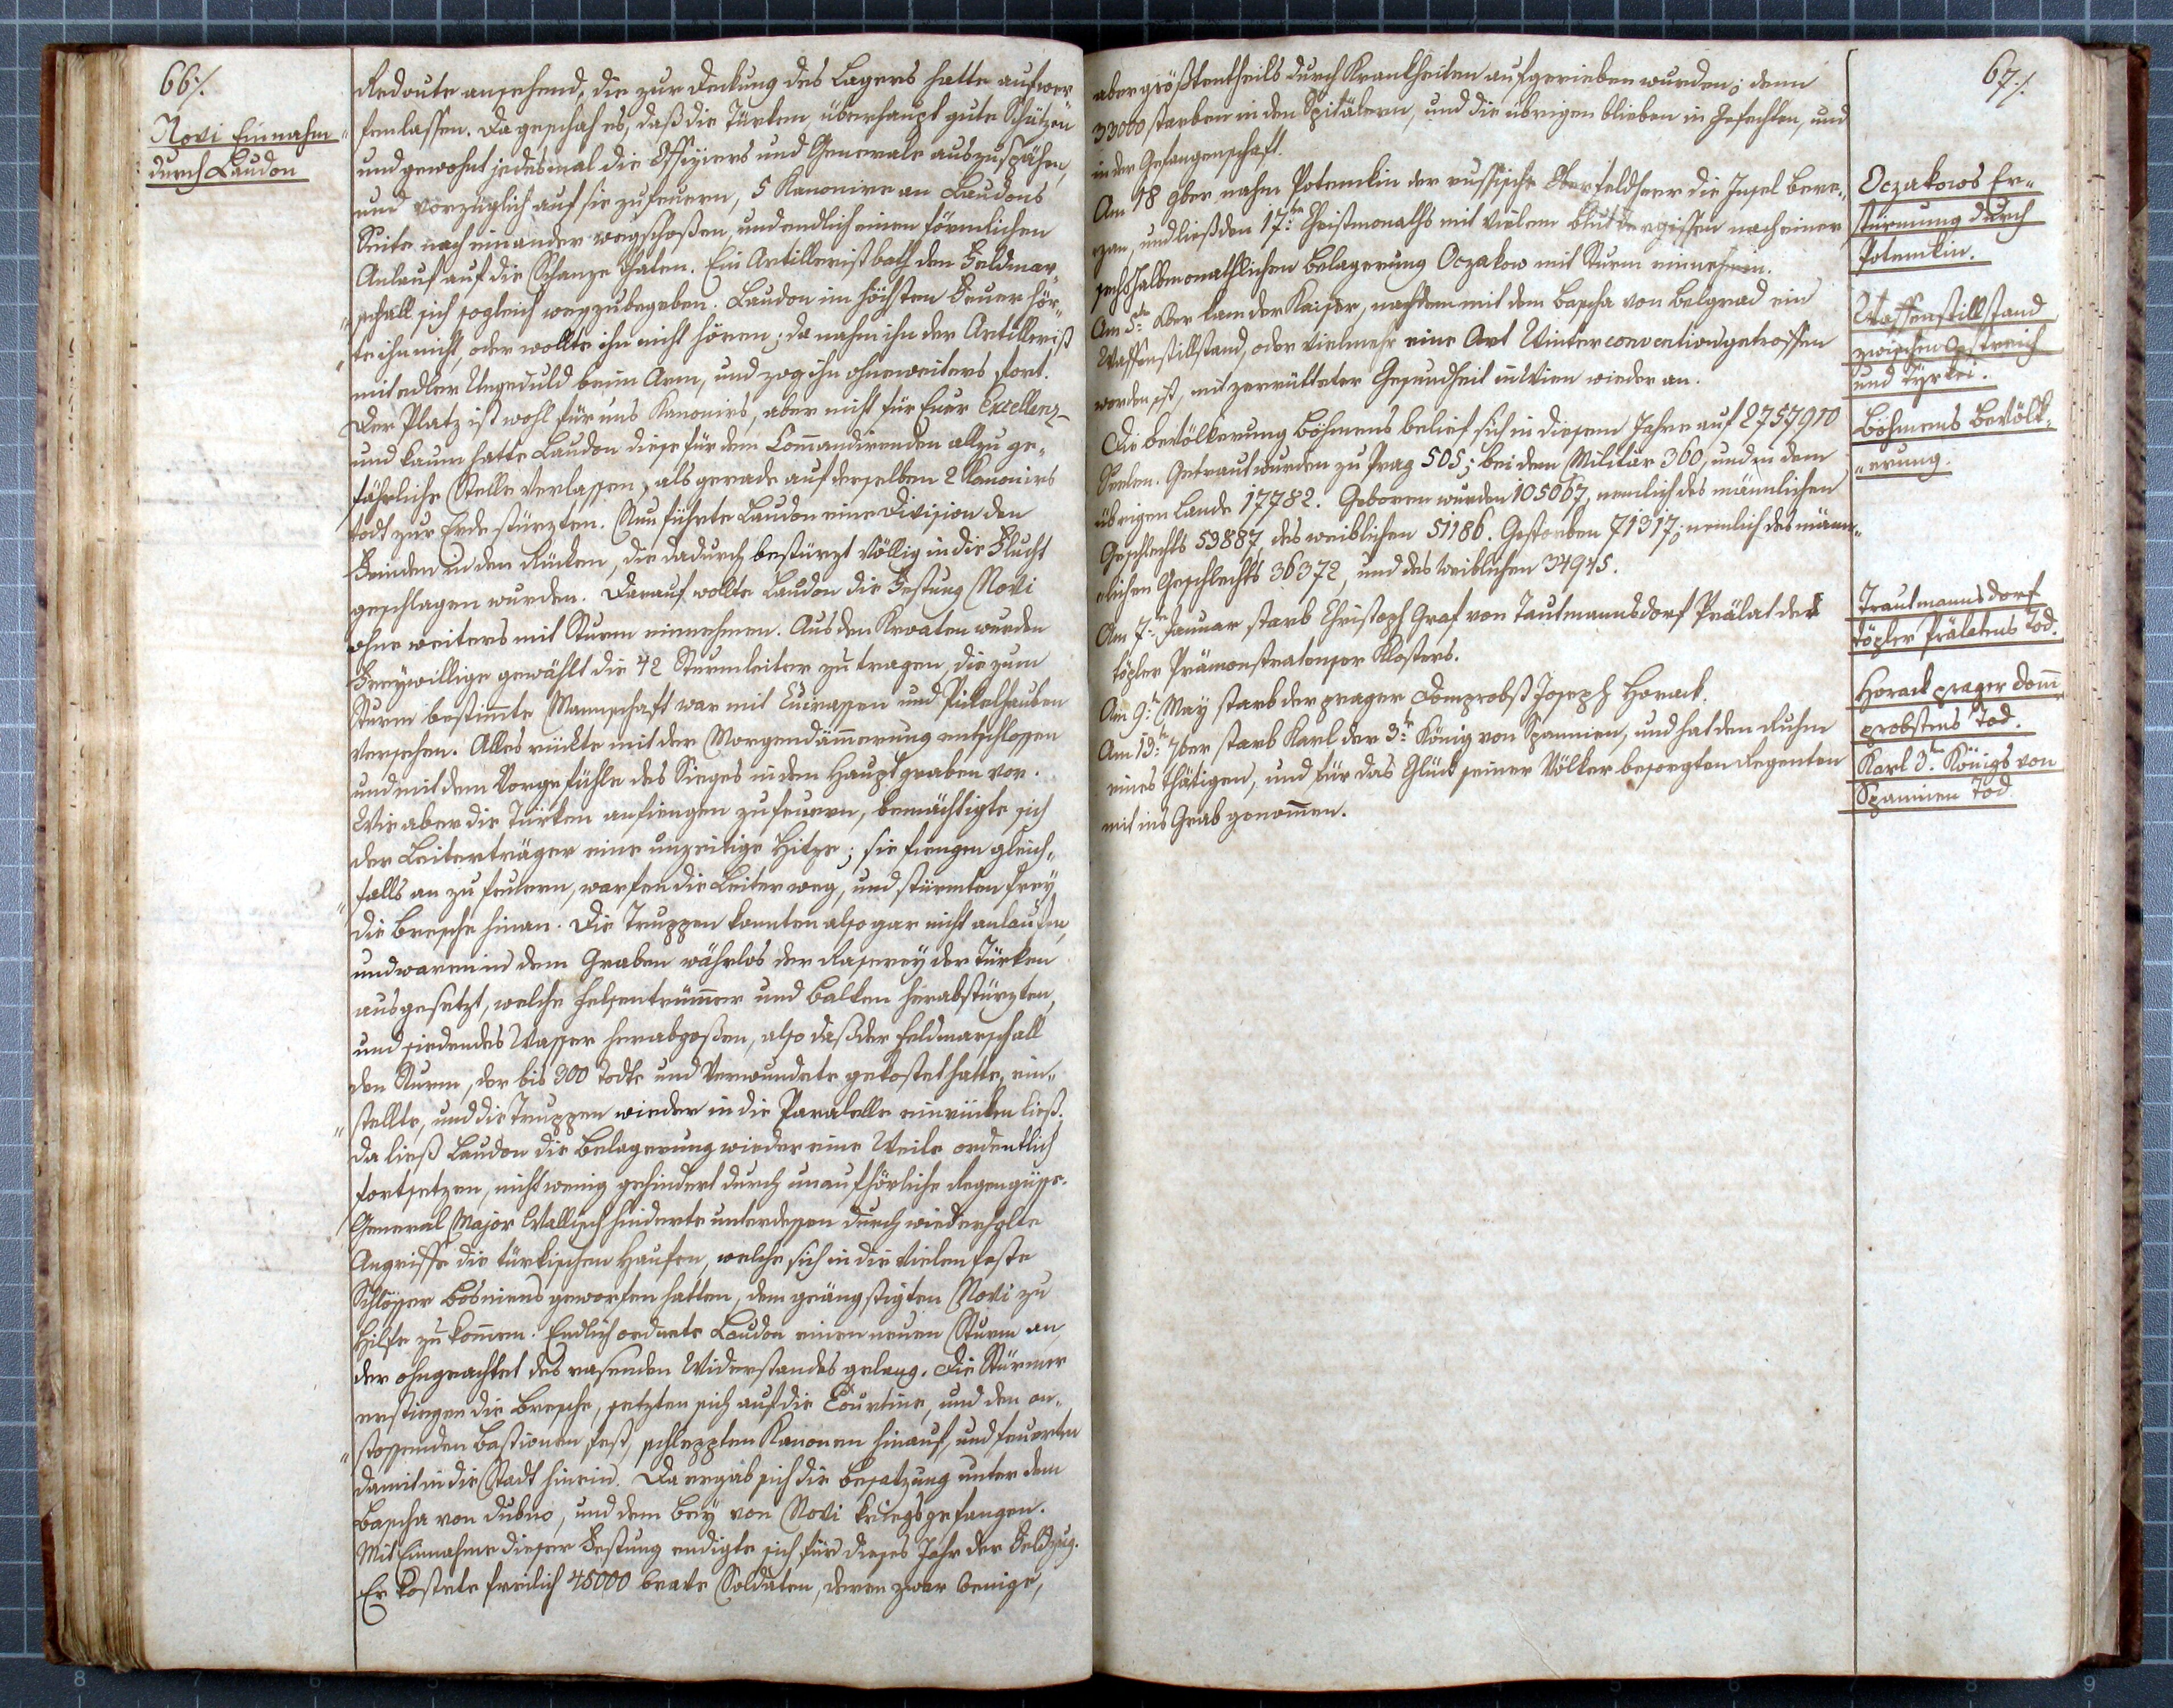 66./.
Novi Einnahm„
durch Laudon
Redoute ansehend, die zur Deckung des Lagers hatte aufwer„
fen lassen. Da geschah es, daß die Türken überhaupt gute Schützen
und gewohnt jedesmal die Offiziers und Generale auszuspähen,
und vorzüglich auf sie zufeuern, 5 Kanonire an Laudons
Seite nach einander wegschoßen, und endlich einen förmlichen
Anlauf auf die Schanze thaten. Ein Artillerist bath den Feldmar„
„schall sich sogleich wegzubegeben. Laudon im höchsten Feuer hör„
„te ihn nicht, oder wollte ihn nicht hören; da nahm ihn der Artillerist
mit edler Ungeduld beim Arm, und zog ihn ohneweiters fort.
Der Platz ist wohl für uns Kanonirs, aber nicht für Euer Excellenz
und kaum hatte Laudon diese für den Com̄andirenden allzu ge„
fährliche Stelle verlassen, als gerade auf derselben 2 Kanonirs
todt zur Erde stürzten. Nun führte Laudon eine Division den
Feinden in den Rücken, die dadurch bestürzt völlig in die Flucht
geschlagen wurden. Darauf wollte Laudon die Festung Novi
ohne weiters mit Sturm einnehmen. Aus den Kroaten wurden
Freywillige gewählt die 42 Sturmleiter zu tragen, die zum
Sturm bestim̄te Mannschaft war mit Cuirassen und Pickelhauben
versehen. Alles rückte mit der Morgendäm̄erung entschlossen
und mit dem Vorgefühle des Sieges in den Hauptgraben vor.
Wie aber die Türken anfiengen zu feuern, bemächtigte sich
der Leiterträger eine unzeitige Hitze; sie fiengen gleich„
„falls an zu feuern, warfen die Leiter weg, und stürmten frey
die Bresche hinan. Die Truppen konnten also gar nicht anlaufen,
und waren in dem Graben währlos der Raserey der Türken
ausgesetzt, welche Felsentrüm̄er und Balken herabstürzten,
und siedendes Wasser herabgoßen, also daß der Feldmarschall
den Sturm, der bis 300 Todte und Verwundete gekostet hatte, ein„
„stellte, und die Truppen wieder in die Paralelle einrücken ließ.
Da ließ Laudon die Belagerung wieder eine Weile ordentlich
fortsetzen, nicht wenig gehindert durch unaufhörliche Regengüsse.
General Major Wallisch hinderte unterdessen durch wiederholte
Angriffe die türkischen Haufen, welche sich in die vielen feste
Schlösser Bosniens geworfen hatten, dem geängstigten Novi zu
Hilfe zu kom̄en. Endlich ordnete Laudon einen neuen Sturm an,
der ohngeachtet des rasenden Widerstandes gelang. Die Stürmer
erstiegen die Bresche, setzten sich auf die Courtine, und den an„
„stossenden Bastionen fest, schleppten Kanonen hinauf, und feuerten
damit in die Stadt hinein. Da ergab sich die Besatzung unter dem
Bascha von Dubno, und dem Bey von Novi kriegsgefangen.
Mit Einnahme dieser Festung endigte sich für dieses Jahr der Feldzug.
Er kostete freilich 45000 brave Soldaten, deren zwar wenige,
67./.
aber größtentheils durch Krankheiten aufgerieben wurden; denn
33000 starben in den Spitälern, und die übrigen blieben in Gefechten, und
in der Gefangenschaft.
Am 18 9ber nahm Potemkin der russische Oberfeldherr die Insel Bere„
zan, und ließ den 17:ten Christmonaths mit vielem Blutvergissen nach einer
sechshalbmonathlichen Belagerung Oczakow mit Sturm einnehmen.
Am 5:ten Xber kam der Kaiser, nachdem mit dem Bascha von Belgrad ein
Waffenstillstand, oder vielmehr eine Art Winterconvention getroffen
worden ist, mit zerrütteter Gesundheit in Wien wieder an.
Die Bevölkerung Böhmens belief sich in diesem Jahre auf 2757910
Seelen. Getraut wurden zu Prag 505; bei dem Militär 360, und in dem
übrigen Lande 17782. Geboren wurden 105067, nemlich des männlichen
Geschlechts 53887, des weiblichen 51186. Gestorben 71317; nemlich des männ„
„lichen Geschlechts 36372, und des weiblichen 34945.
Am 7:ten Januar starb Christoph Graf von Tautmannsdorf Prälat des
töpler Prämonstratenser Klosters.
Am 9:ten May starb der prager Domprobst Joseph Horack.
Am 13:ten 7ber starb Karl der 3:te König von Spannien, und hat den Ruhm
eines thätigen, und für das Glück seiner Völker besorgten Regenten
mit ins Grab genom̄en.
Oczakows Er„
stürmung durch
Potemkin.
Waffenstillstand
zwischen Oestreich
und Türkei.
Böhmens Bevölk„
„erung.
Trautmannsdorf
töpler Prälatens Tod.
Horack prager Dom̄
probstens Tod.
Karl 3:ten Königs von
Spannien Tod